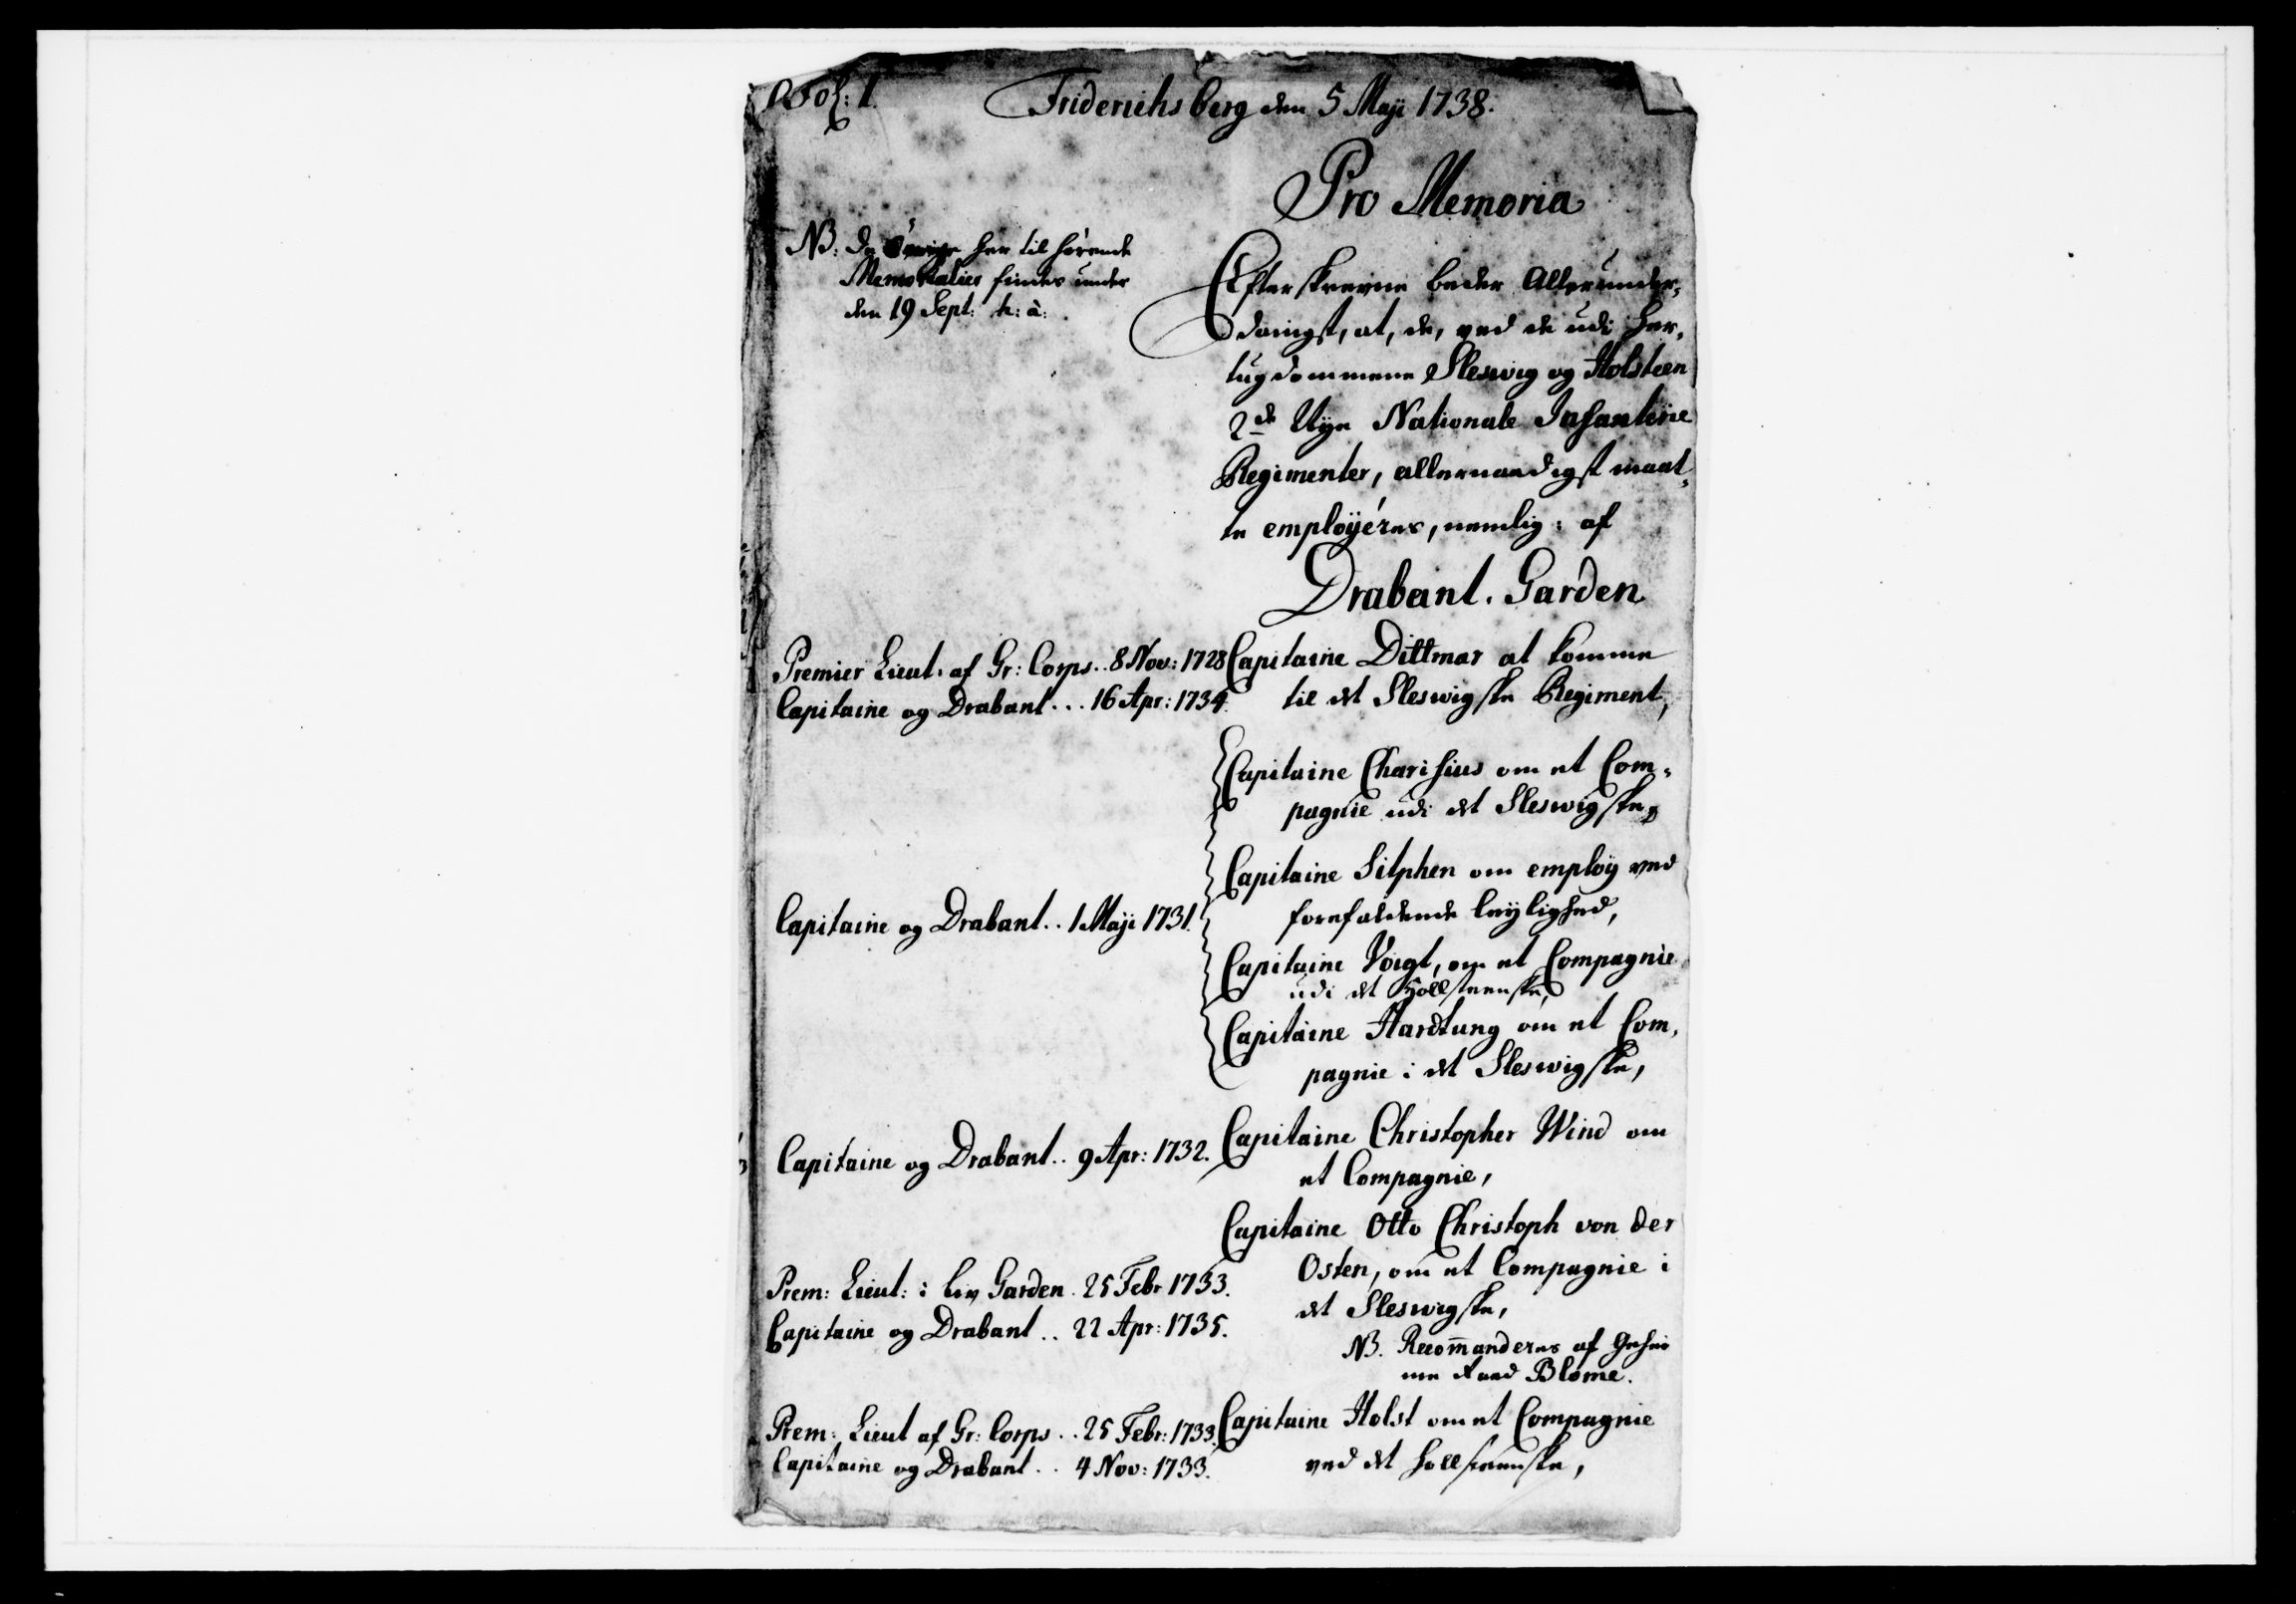 Fol: 1.
Friderichsberg den 5 Maji 1738.
Pro Memoria
NB: De øvrige her til hørende
Memorialier findes under
den 19 Sept: h: à:
Efterskrevne beder Allerunder-
danigst, at, de, ved de udi Her-
tugdommene Sleswig og Holsteen
2de Nye Nationale Infanterie
Regimenter, allernaadigst maat-
te employéres, nemlig: af
Drabant-Garden
Premier Lieut: af Gr: Corps.. 8 Nov: 1728
Capitaine og Drabant... 16 Apr: 1734.
Capitaine Dittmar at komme
til det Sleswigske Regiment,
Capitaine Charisius om et Com-
pagnie udi det Sleswigske,
Capitaine og Drabant.. 1 Maji 1731.
Capitaine Silphen om employ ved
forefaldende leylighed,
Capitaine Voigt, om et Compagnie
udi det Hollsteenske,
Capitaine Hardtung om et Com-
pagnie i det Sleswigske,
Capitaine og Drabant.. 9 Apr: 1732.
Capitaine Christopher Wind om
et Compagnie,
Prem: Lieut: i Liv Garden. 25 Febr 1733.
Capitaine og Drabant.. 22 Apr: 1735.
Capitaine Otto Christoph von der
Osten, om et Compagnie i
det Sleswigske,
NB. Recom̄anderes af Gehei
me Raad Blome.
Prem: Lieut af Gr: Corps.. 25 Febr: 1733.
Capitaine og Drabant.. 4 Nov: 1733.
Capitaine Holst om et Compagnie
ved det Hollsteenske,